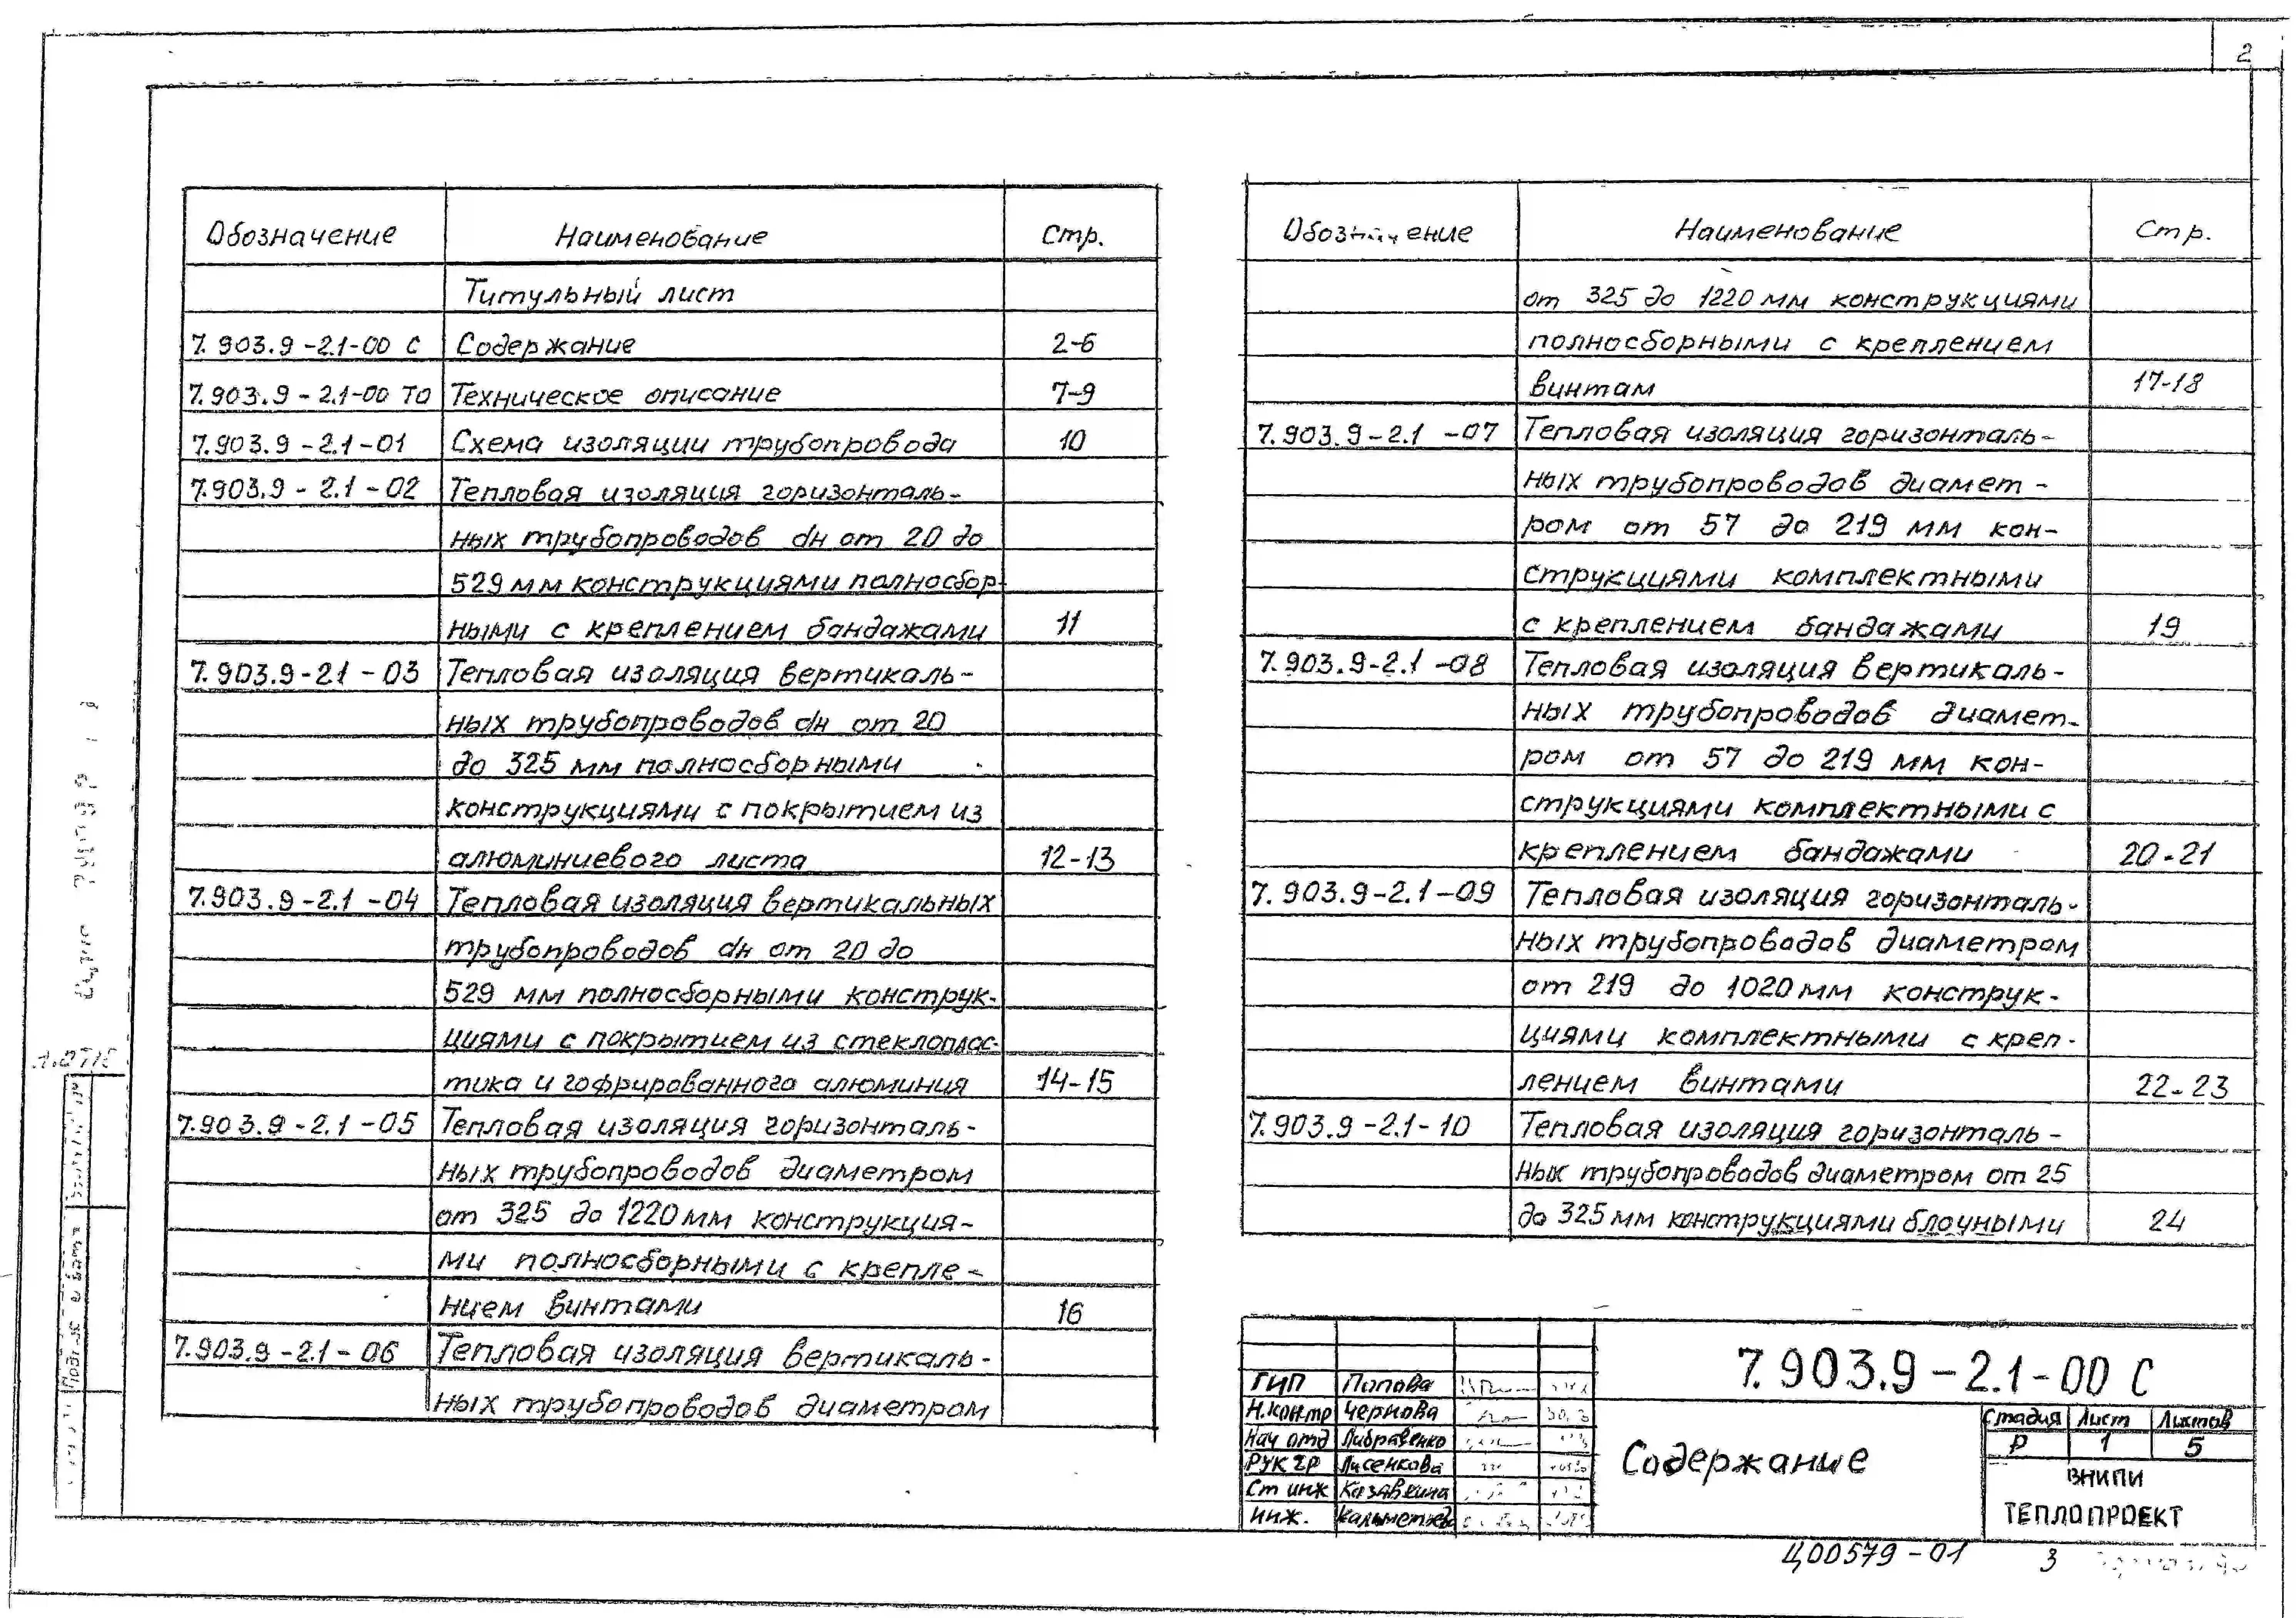 2
Обозначение Наименование Стр.
Титульный лист
7.903.9-2.1-00 С Содержание 2-6
7.903.9-2.1-00 ТО Техническое описание 7-9
7.903.9-2.1-01 Схема изоляции трубопровода 10
7.903.9-2.1-02 Тепловая изоляция горизонталь-
ных трубопроводов dн от 20 до
529 мм конструкциями полносбор-
ными с креплением бандажами 11
7.903.9-21-03 Тепловая изоляция вертикаль-
ных трубопроводов dн от 20
до 325 мм полносборными
конструкциями с покрытием из
алюминиевого листа 12-13
7.903.9-2.1-04 Тепловая изоляция вертикальных
трубопроводов dн от 20 до
529 мм полносборными конструк-
циями с покрытием из стеклоплас-
тика и гофрированного алюминия 14-15
7.903.9-2.1-05 Тепловая изоляция горизонталь-
ных трубопроводов диаметром
от 325 до 1220 мм конструкция-
ми полносборными с крепле-
нием винтами 16
7.903.9-2.1-06 Тепловая изоляция вертикаль-
ных трубопроводов диаметром
Обозначение Наименование Стр.
от 325 до 1220 мм конструкциями
полносборными с креплением
винтам 17-18
7.903.9-2.1-07 Тепловая изоляция горизонталь-
ных трубопроводов диамет-
ром от 57 до 219 мм кон-
струкциями комплектными
с креплением бандажами 19
7.903.9-2.1-08 Тепловая изоляция вертикаль-
ных трубопроводов диамет-
ром от 57 до 219 мм кон-
струкциями комплектными с
креплением бандажами 20-21
7.903.9-2.1-09 Тепловая изоляция горизонталь-
ных трубопроводов диаметром
от 219 до 1020 мм конструк-
циями комплектными с креп-
лением винтами 22-23
7.903.9-2.1-10 Тепловая изоляция горизонталь-
ных трубопроводов диаметром от 25
до 325 мм конструкциями блочными 24
7.903.9-2.1-00 С
ГИП Попова
Н.контр Чернова
Нач отд Либравенко
Рук гр Лисенкова
Ст инж Казавкина
инж.
Содержание
Стадия Лист Листов
Р 1 5
ВНИПИ
ТЕПЛОПРОЕКТ
Ц00579-01 3